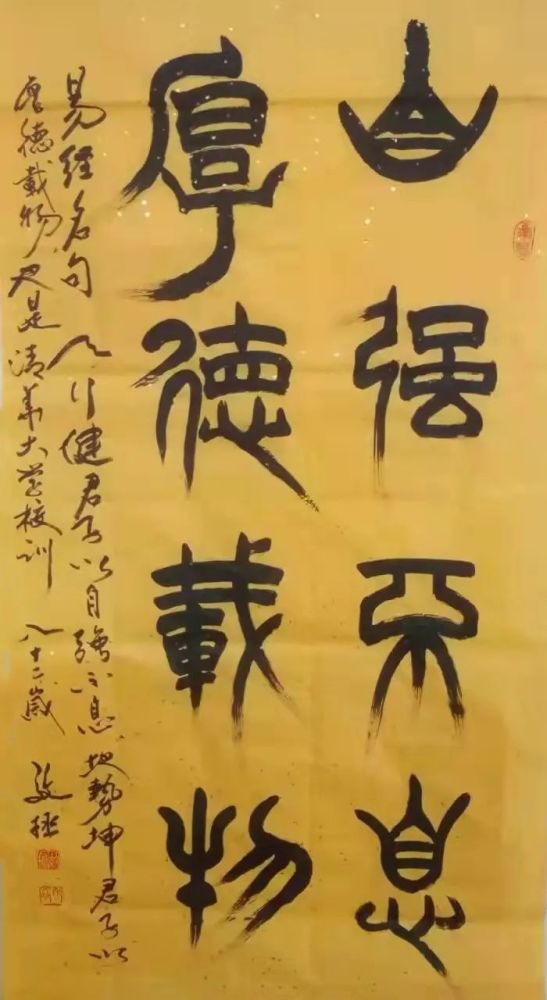 自强不息
厚德載物
易经名句 天行健君子以自強不息地勢坤君子以
厚德載物又是清華大学校训 八十二歲